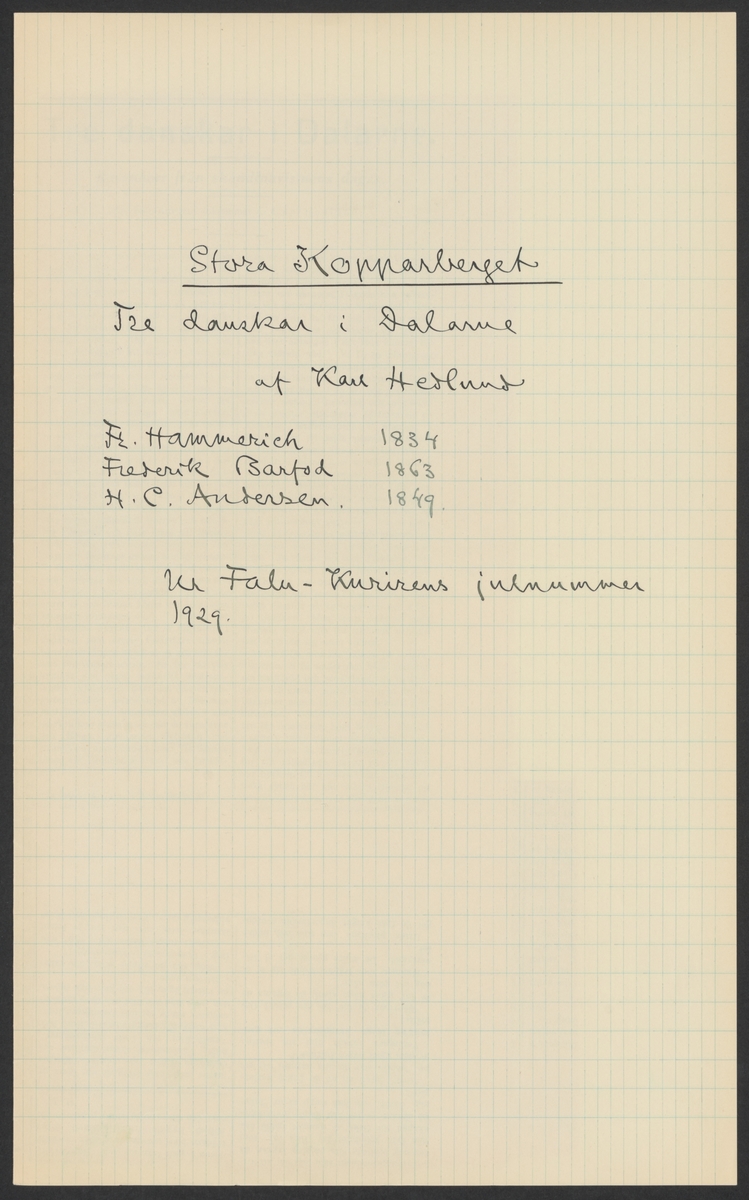 Stora Kopparberget
Tre danskar i Dalarne
af Karl Hedlund
Fr. Hammerich 1834
Frederik Barfod 1863
H. C. Andersen. 1849.
Ur Falu-Kurirens julnummer
1929.